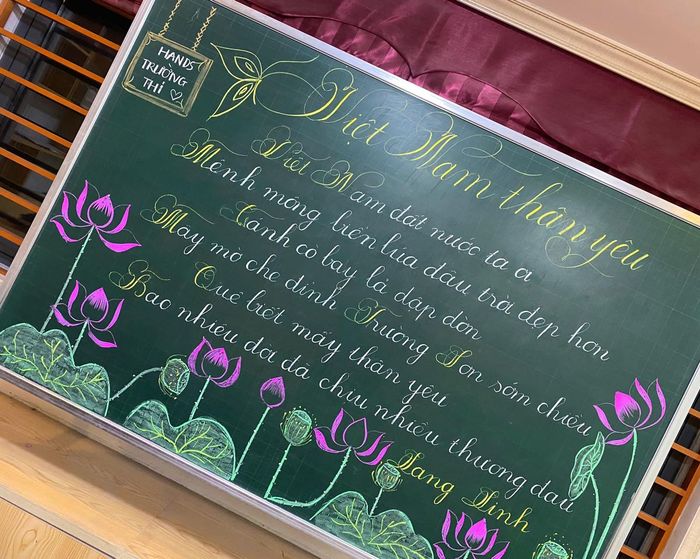 HANDS
TRƯỜNG
THI
Việt Nam thân yêu
Việt Nam đất nước ta ơi
Mênh mông biển lúa đâu trời đẹp hơn
Cánh cò bay lả dập dờn
Mây mờ che đỉnh Trường Sơn sớm chiều
Quê biết mấy thân yêu
Bao nhiêu đời đã chịu nhiều thương đau
Lang Linh